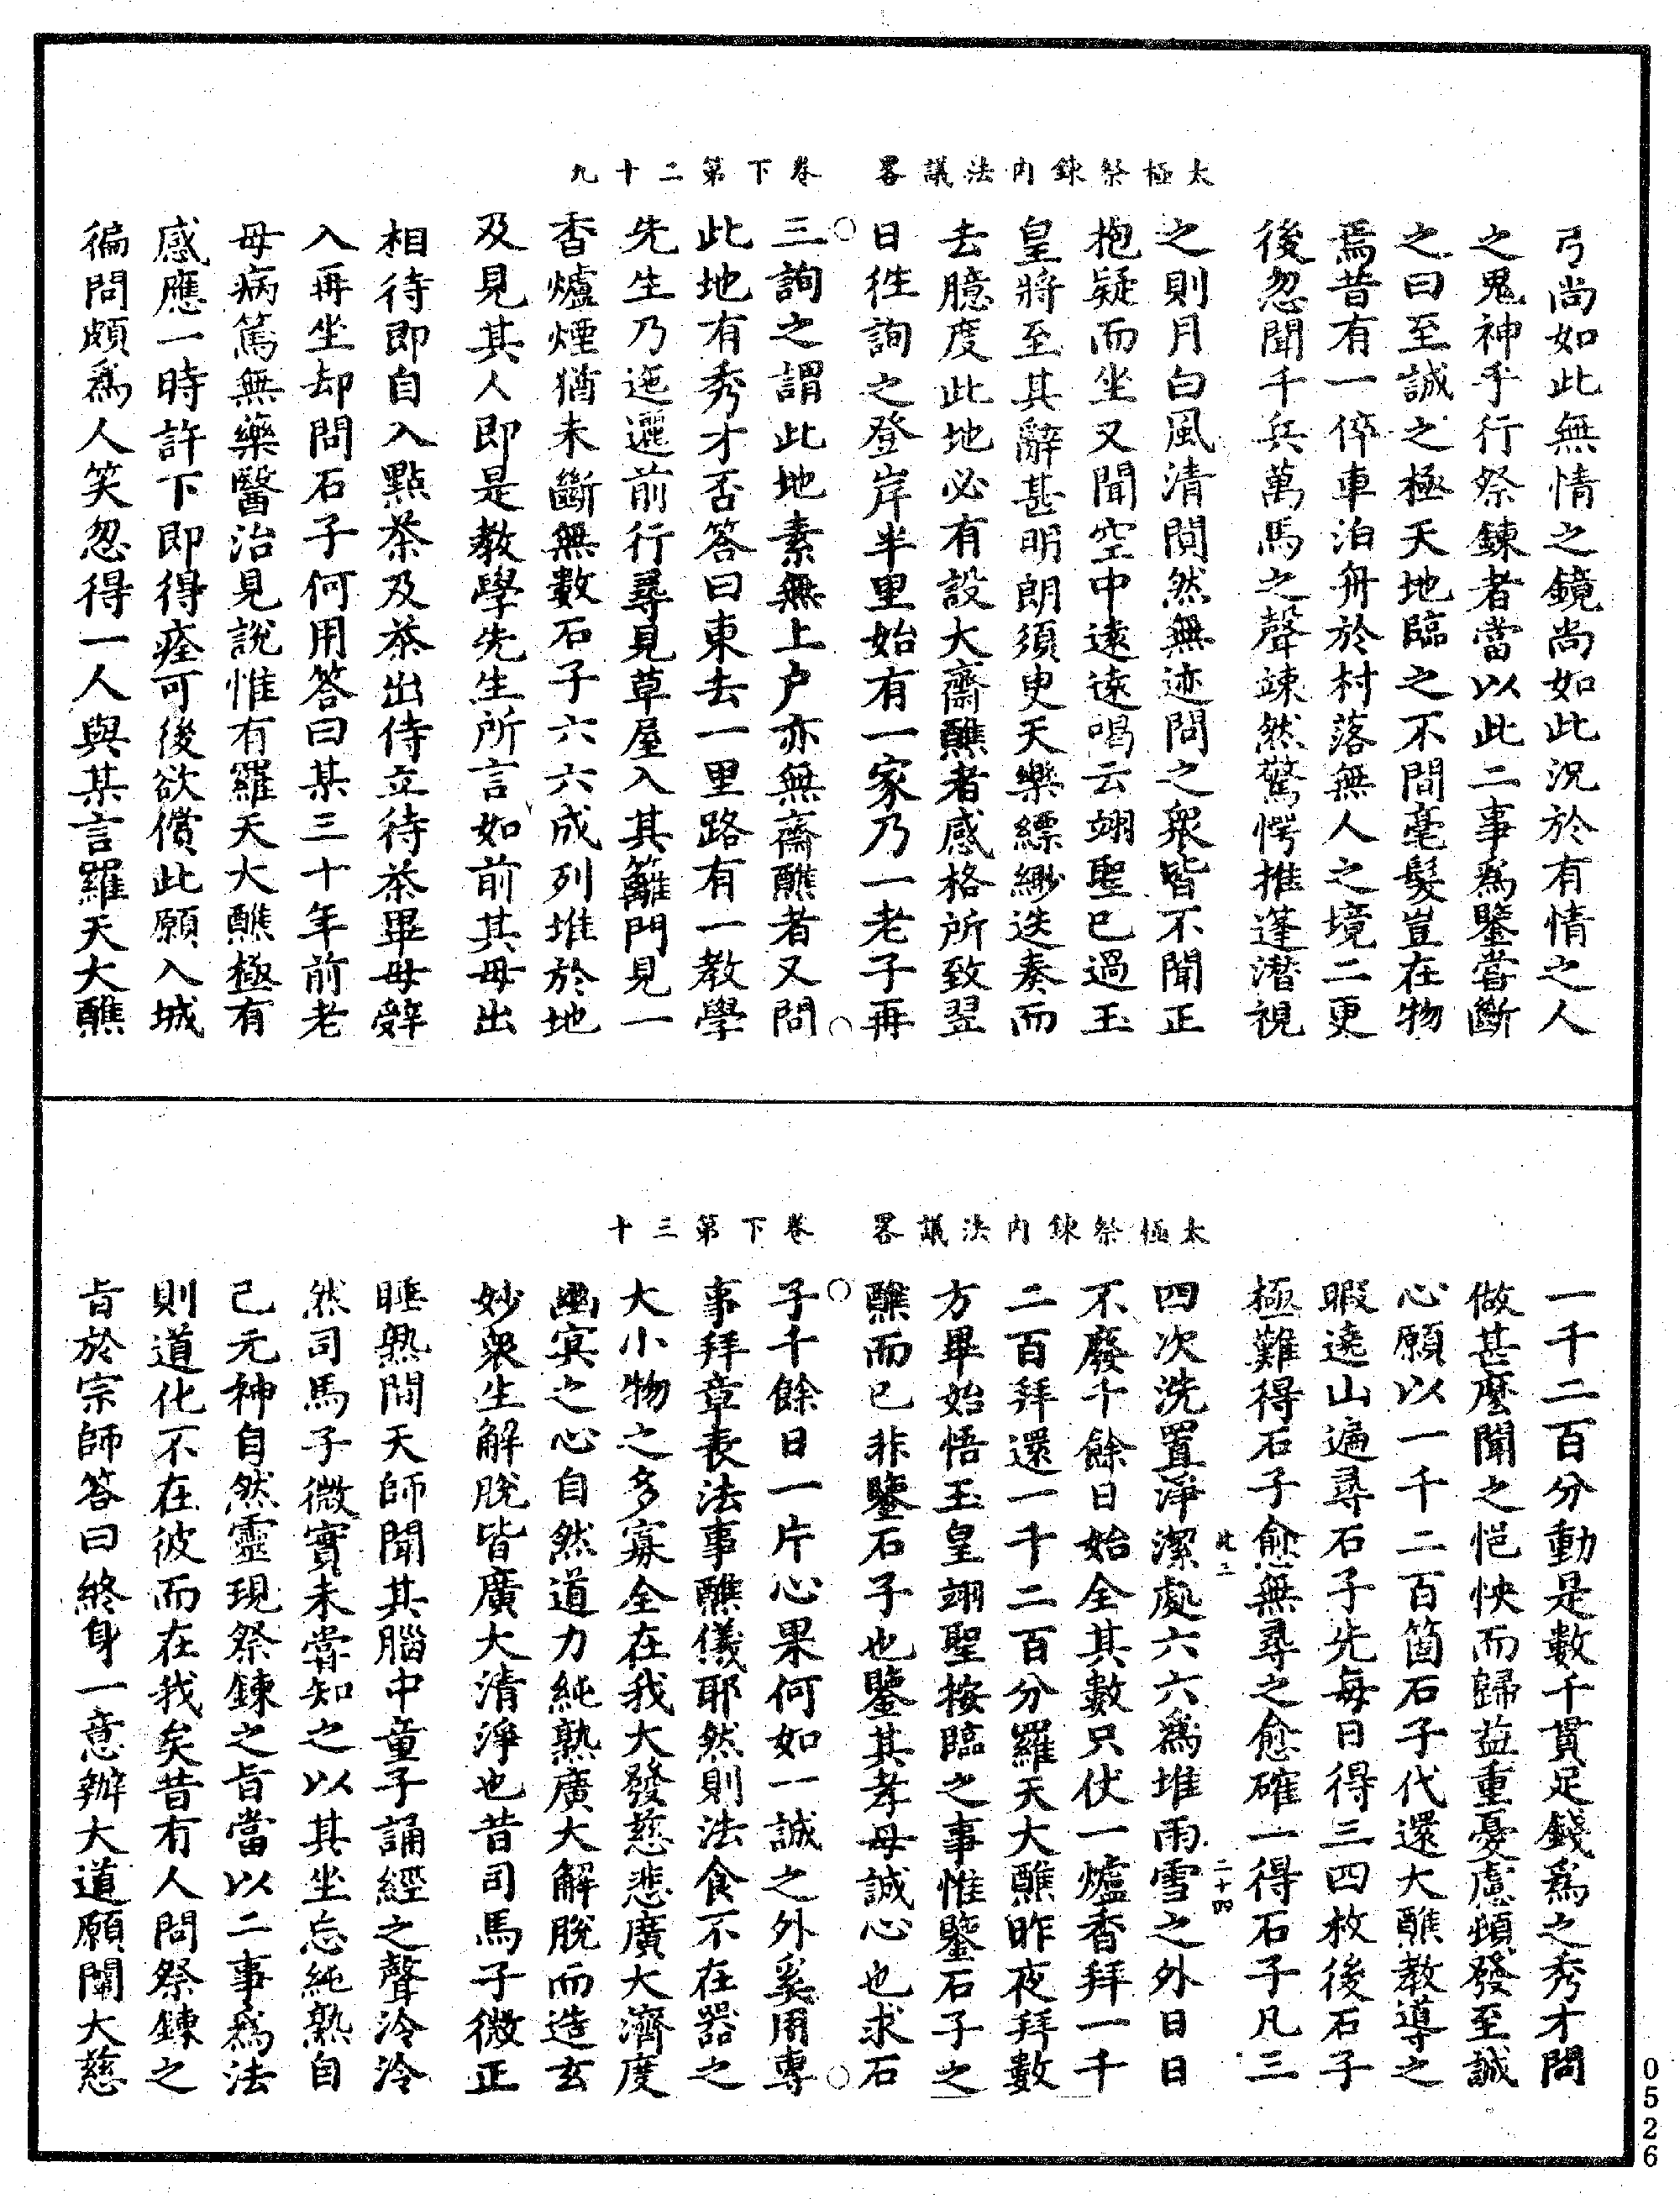 太極祭鍊内法議畧　卷下第二十九
弓尚如此無情之鏡尚如此況於有情之人
之鬼神乎行祭鍊者當以此二事爲鑒嘗斷
之曰至誠之極天地臨之不間毫髮豈在物
焉昔有一倅車泊舟於村落無人之境二更
後忽聞千兵萬馬之聲竦然驚愕推蓬潜視
之則月白風清閴然無迹問之衆皆不聞正
抱疑而坐又聞空中遠遠喝云翊聖已過玉
皇將至其辭甚明朗須臾天樂縹緲迭奏而
去臆度此地必有設大齋醮者感格所致翌
日徃詢之登岸半里始有一家乃一老子再
三詢之謂此地素無上户亦無齋醮者又問
此地有秀才否答曰東去一里路有一教學
先生乃迤邐前行尋見草屋入其籬門見一
香爐煙猶未斷無數石子六六成列堆於地
及見其人即是教學先生所言如前其母出
相待即自入點茶及茶出侍立待茶畢母辭
入再坐却問石子何用答曰某三十年前老
母病篤無藥醫治見說惟有羅天大醮極有
感應一時許下即得痊可後欲償此願入城
徧問頗爲人笑忽得一人與某言羅天大醮
太極祭鍊内法議畧　卷下第三十
一千二百分動是數千貫足錢爲之秀才問
做甚麼聞之悒怏而歸益重憂慮頓發至誠
心願以一千二百箇石子代還大醮教導之
暇遶山遍尋石子先每日得三四枚後石子
極難得石子愈無尋之愈確一得石子凡三
四次洗置淨潔處六六爲堆雨雪之外日日
不廢千餘日始全其數只伏一爐香拜一千
二百拜還一千二百分羅天大醮昨夜拜數
方畢始悟玉皇翊聖按臨之事惟鑒石子之
醮而已非鑒石子也鑒其孝母誠心也求石
子千餘日一片心果何如一誠之外奚用專
事拜章表法事醮儀耶然則法食不在器之
大小物之多寡全在我大發慈悲廣大濟度
幽冥之心自然道力純熟廣大解脫而造玄
妙衆生解脫皆廣大清淨也昔司馬子微正
睡熟間天師聞其腦中童子誦經之聲泠泠
然司馬子微實未嘗知之以其坐忘純熟自
己元神自然靈現祭鍊之旨當以二事爲法
則道化不在彼而在我矣昔有人問祭鍊之
旨於宗師答曰終身一意辦大道願闡大慈
二十四
0526